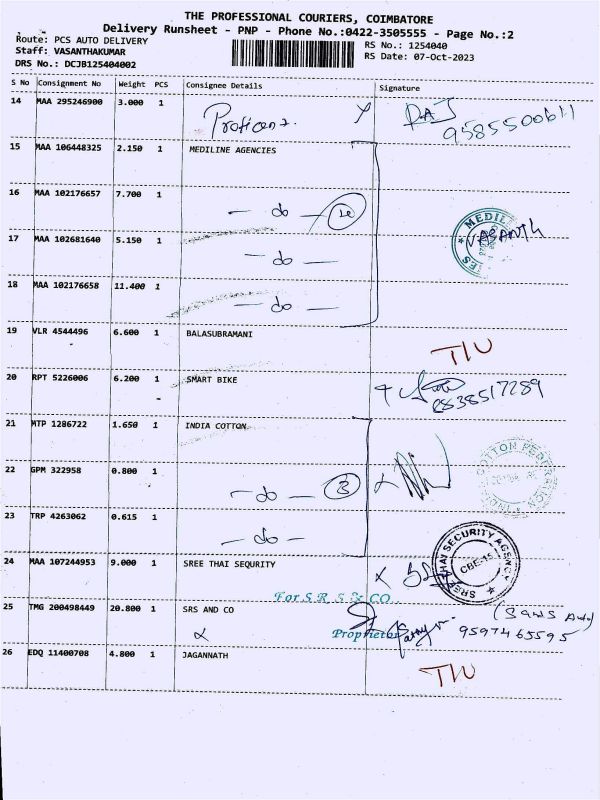 THE PROFESSIONAL COURIERS, COIMBATORE
Delivery Runsheet - PNP - Phone No.:0422-3505555 - Page No.:2
Route: PCS AUTO DELIVERY
RS No.: 1254040
Staff: VASANTHAKUMAR
RS Date: 07-Oct-2023
DRS No.: DCJB125404002
S No Consignment No Weight PCS Consignee Details Signature
14 MAA 295246900 3.000 1 RAJ
9585500611
15 MAA 106448325 2.150 1 MEDILINE AGENCIES
16 MAA 102176657 7.700 1 — do —
17 MAA 102681640 5.150 1 — do — VASANTH
18 MAA 102176658 11.400 1 — do —
19 VLR 4544496 6.600 1 BALASUBRAMANI
20 RPT 5226006 6.200 1 SMART BIKE
8838517289
21 MTP 1286722 1.650 1 INDIA COTTON
22 GPM 322958 0.800 1 — do — 3
23 TRP 4263062 0.615 1 — do —
SREE THAI SECURITY AGENCY
CBE-15
24 MAA 107244953 9.000 1 SREE THAI SEQURITY
For S.R.S & CO.
25 TMG 200498449 20.800 1 SRS AND CO
Proprietor
9597465595
26 EDQ 11400708 4.800 1 JAGANNATH